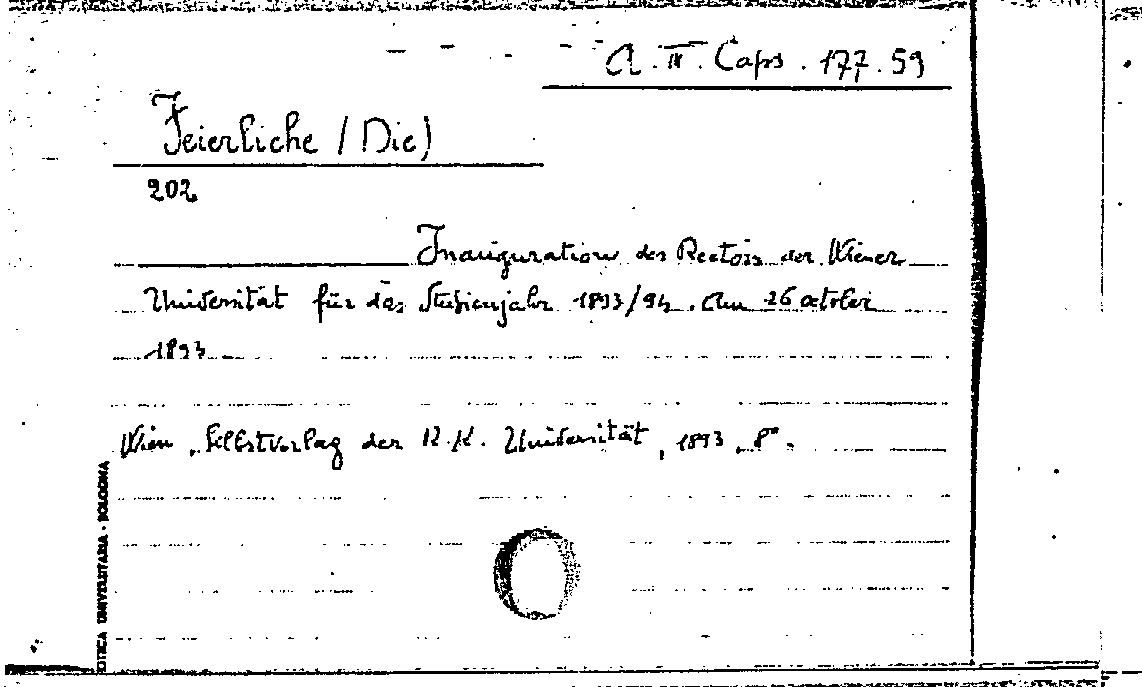 A. III. Caps. 177. 59
Feierliche (Die)
202
Inauguration des Rectors der Wiener
Universität für das Studienjahr 1893/94. Am 26 october
1893
Wien, Selbstverlag der K. K. Universität, 1893, 8°.
OTECA UNIVERSITARIA - BOLOGNA